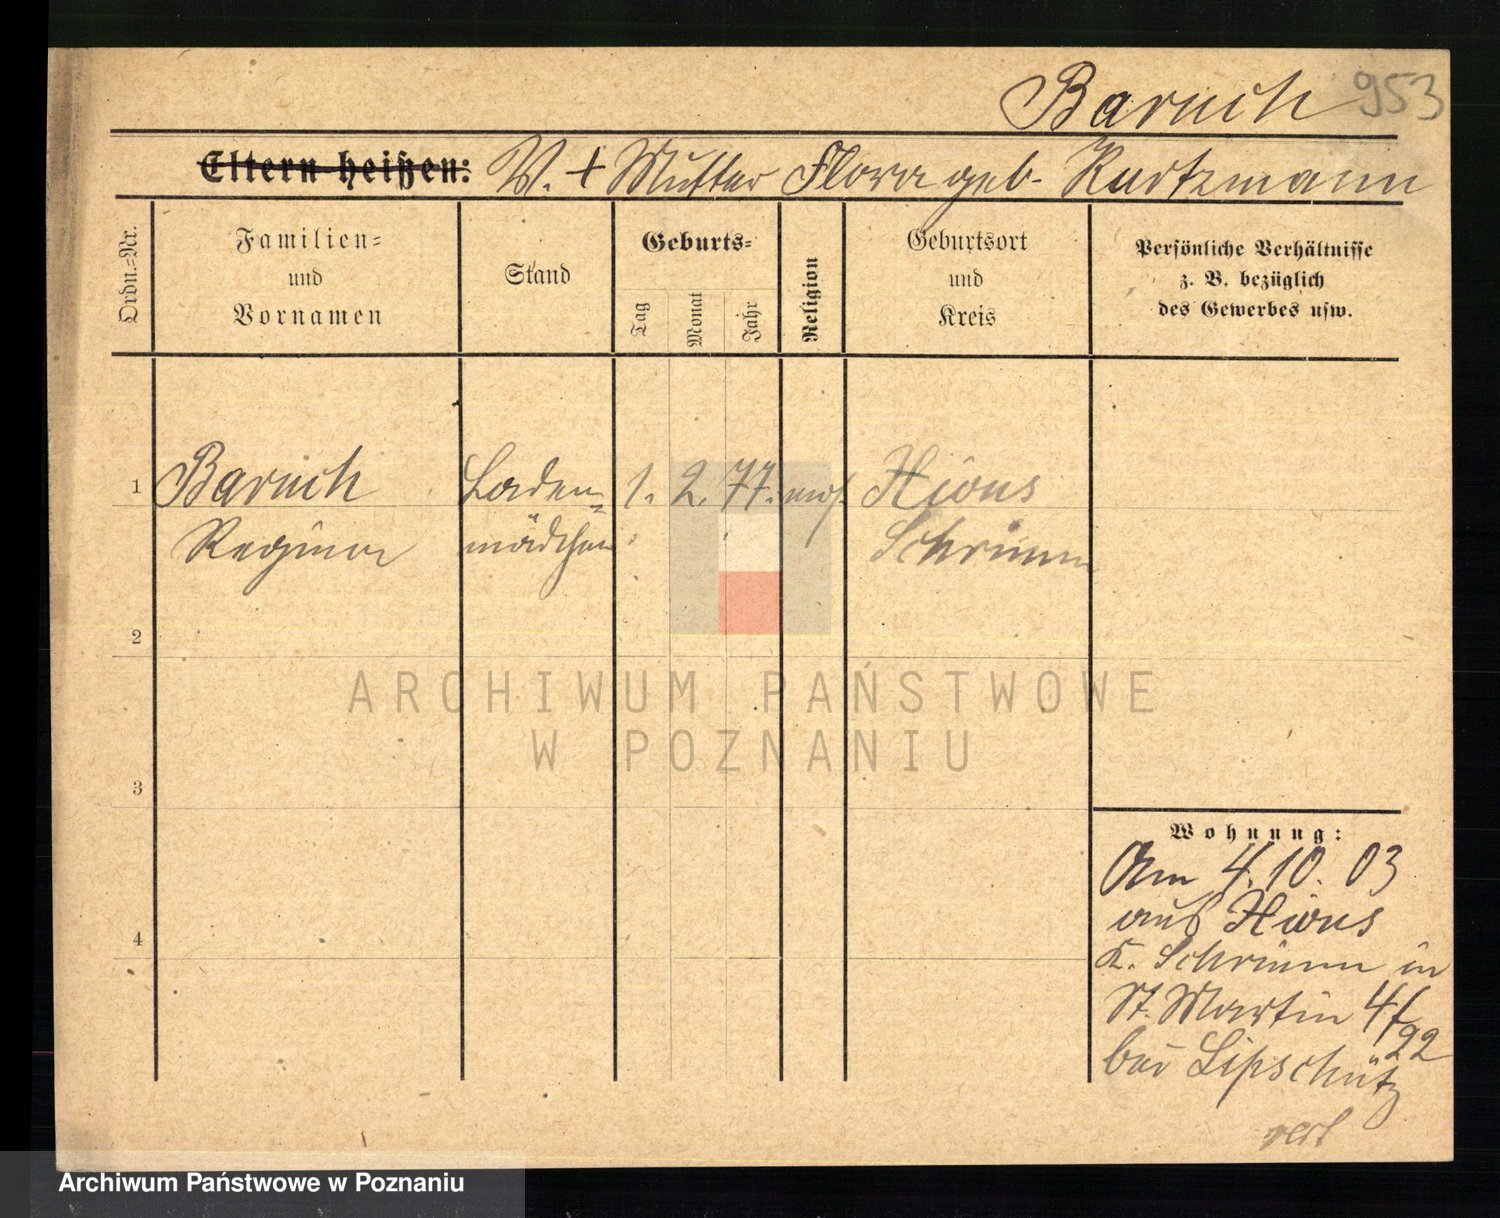 Baruch 953
Eltern heißen: V. + Mutter Flora geb. Kurtzmann
Ordn.=Nr.
Familien=
und
Vornamen
Stand
Geburts=
Tag
Monat
Jahr
Religion
Geburtsort
und
Kreis
Persönliche Verhältnisse
z. B. bezüglich
des Gewerbes usw.
1 Baruch Laden= 1. 2. 77. mos. Xions
Regina mädchen Schrimm
2
3
4
Wohnung:
Am 4.10.03
aus Xions
K. Schrimm in
St. Martin 4/22
bei Lipschütz
ARCHIWUM PAŃSTWOWE
W POZNANIU
Archiwum Państwowe w Poznaniu